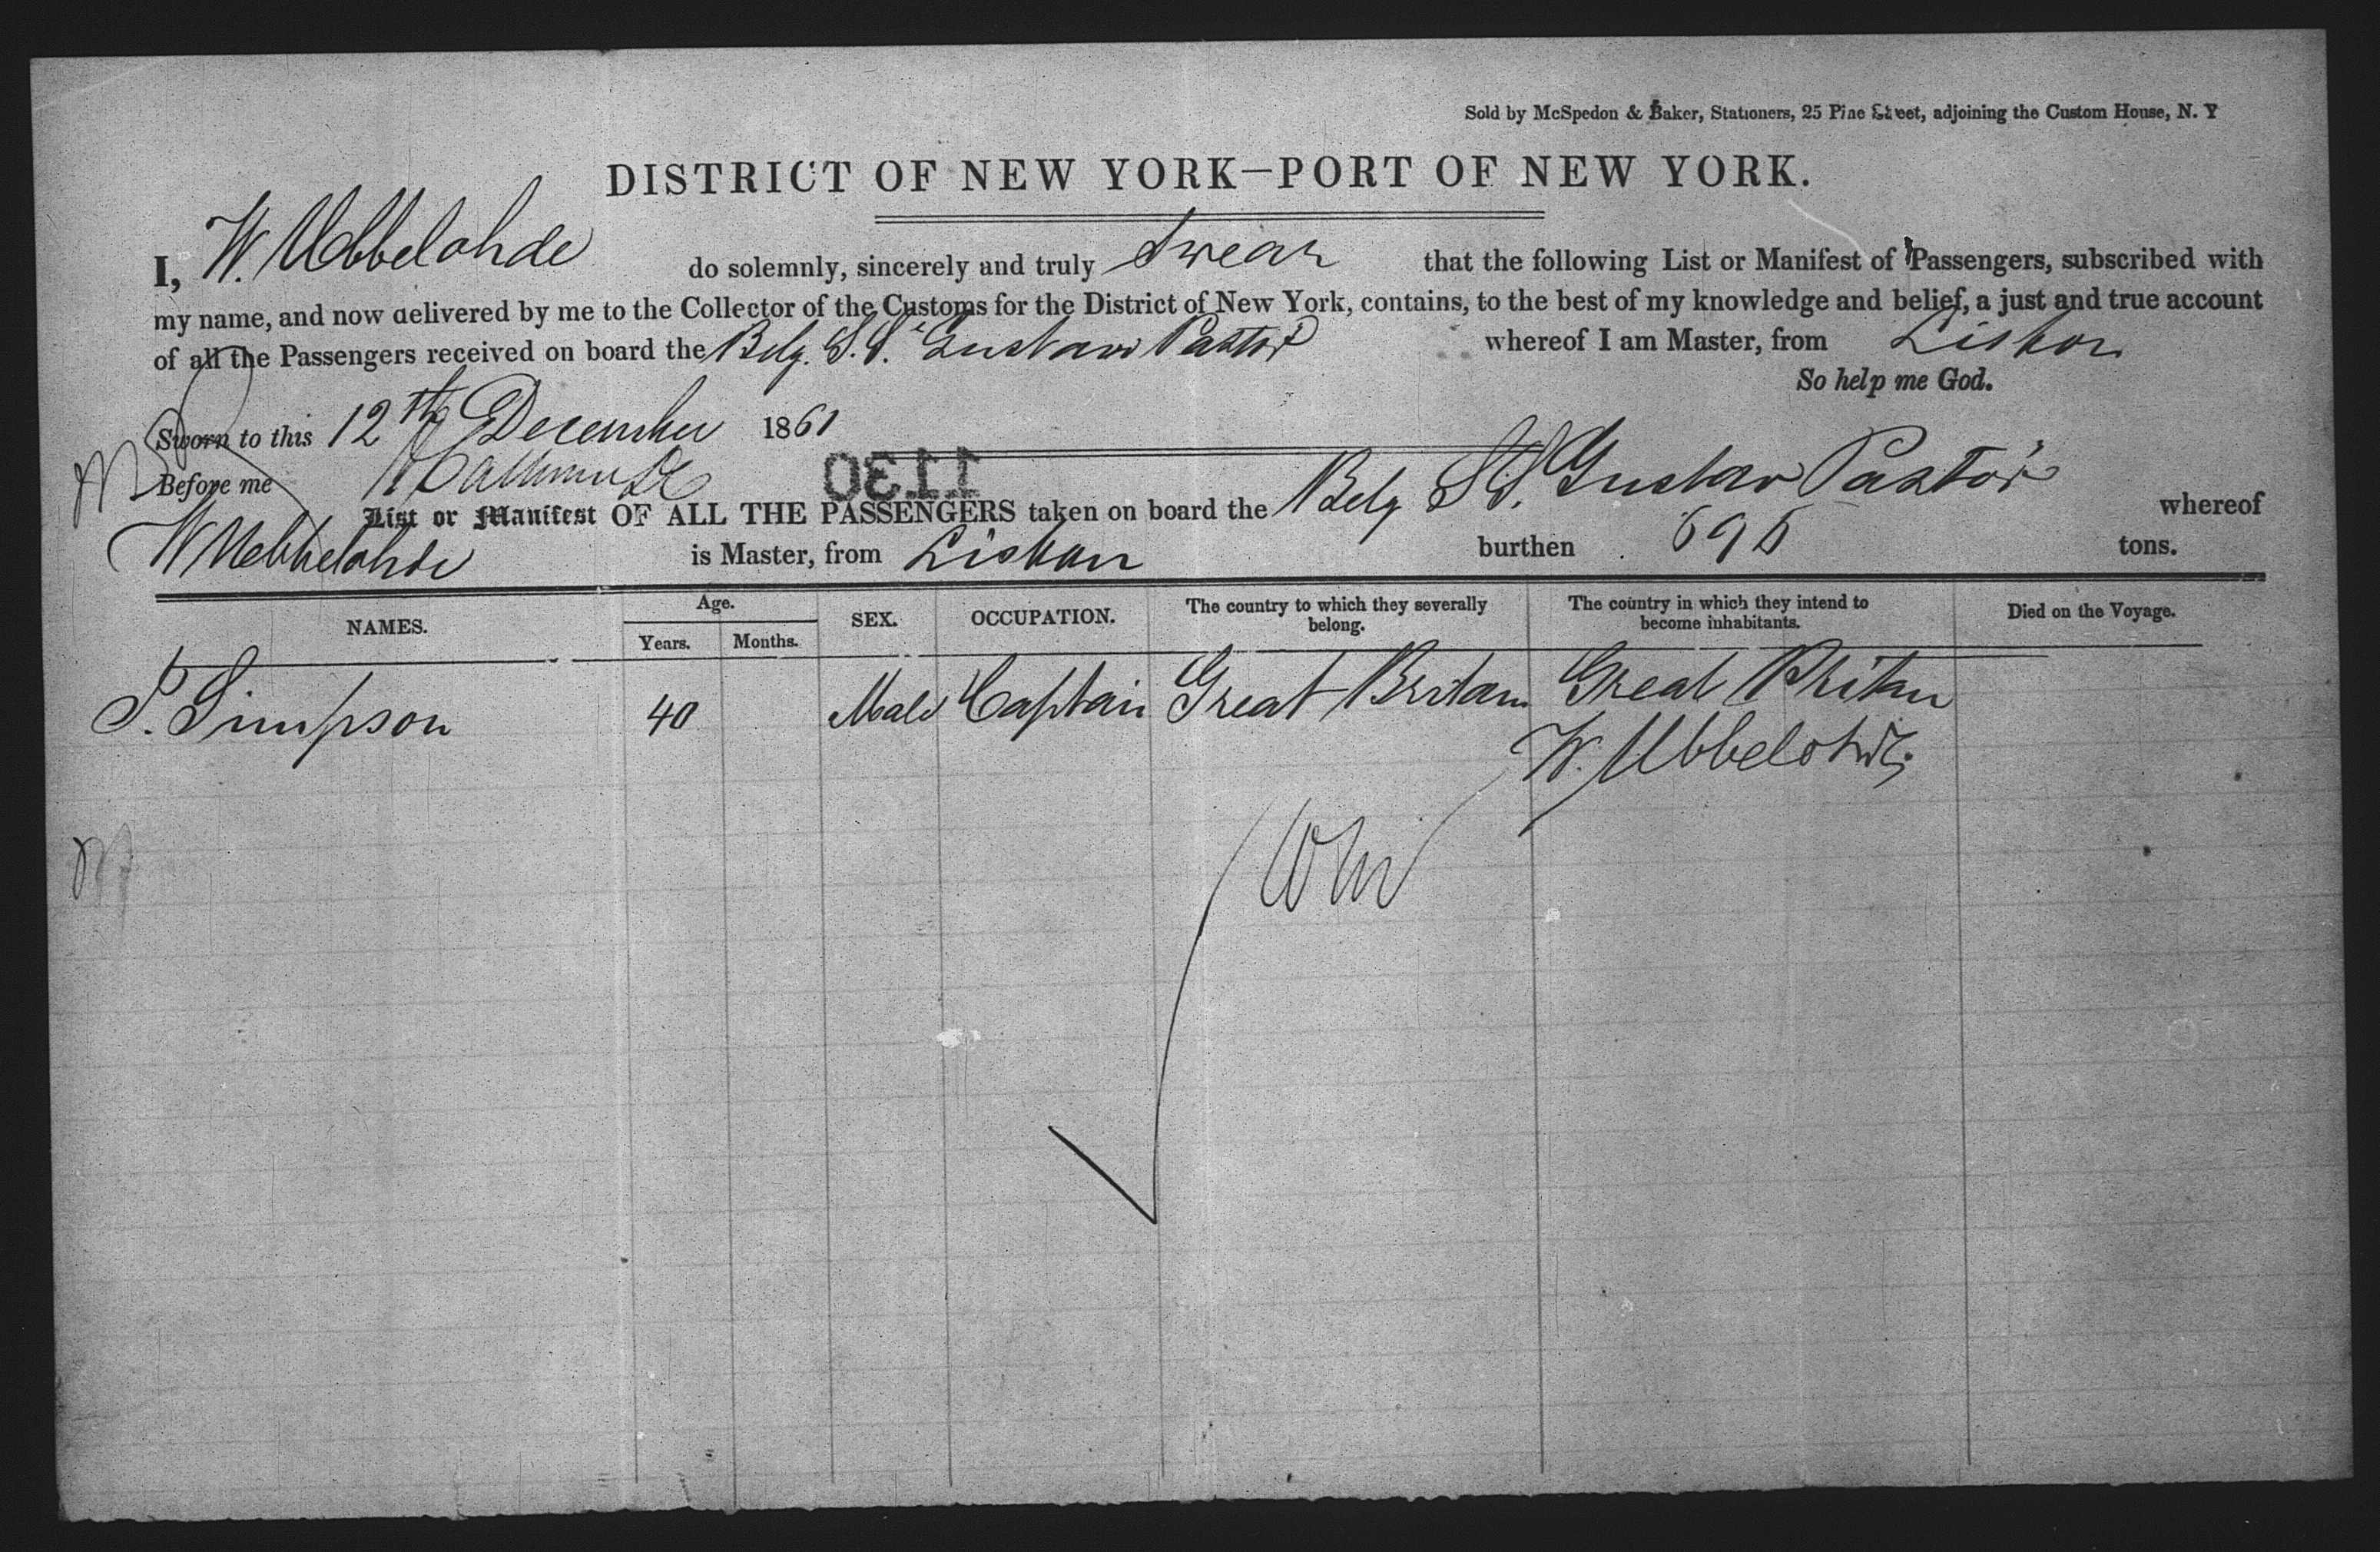 Sold by McSpedon & Baker, Stationers, 25 Pine Street, adjoining the Custom House, N. Y
DISTRICT OF NEW YORK—PORT OF NEW YORK.
I, W. Ubbelohde do solemnly, sincerely and truly swear that the following List or Manifest of Passengers, subscribed with
my name, and now delivered by me to the Collector of the Customs for the District of New York, contains, to the best of my knowledge and belief, a just and true account
of all the Passengers received on board the Belg. S. S. Gustav Pastor whereof I am Master, from Lisbon
So help me God.
Sworn to this 12th December 1861
Before me
1130
List or Manifest OF ALL THE PASSENGERS taken on board the Belg S.S. Gustav Pastor whereof
W Uebbelohde is Master, from Lisbon burthen 695 tons.
NAMES. Age. Years. Months. SEX. OCCUPATION. The country to which they severally belong. The country in which they intend to become inhabitants. Died on the Voyage.
Simpson 40 Male Captain Great Britain Great Britain
W. Ubbelohde